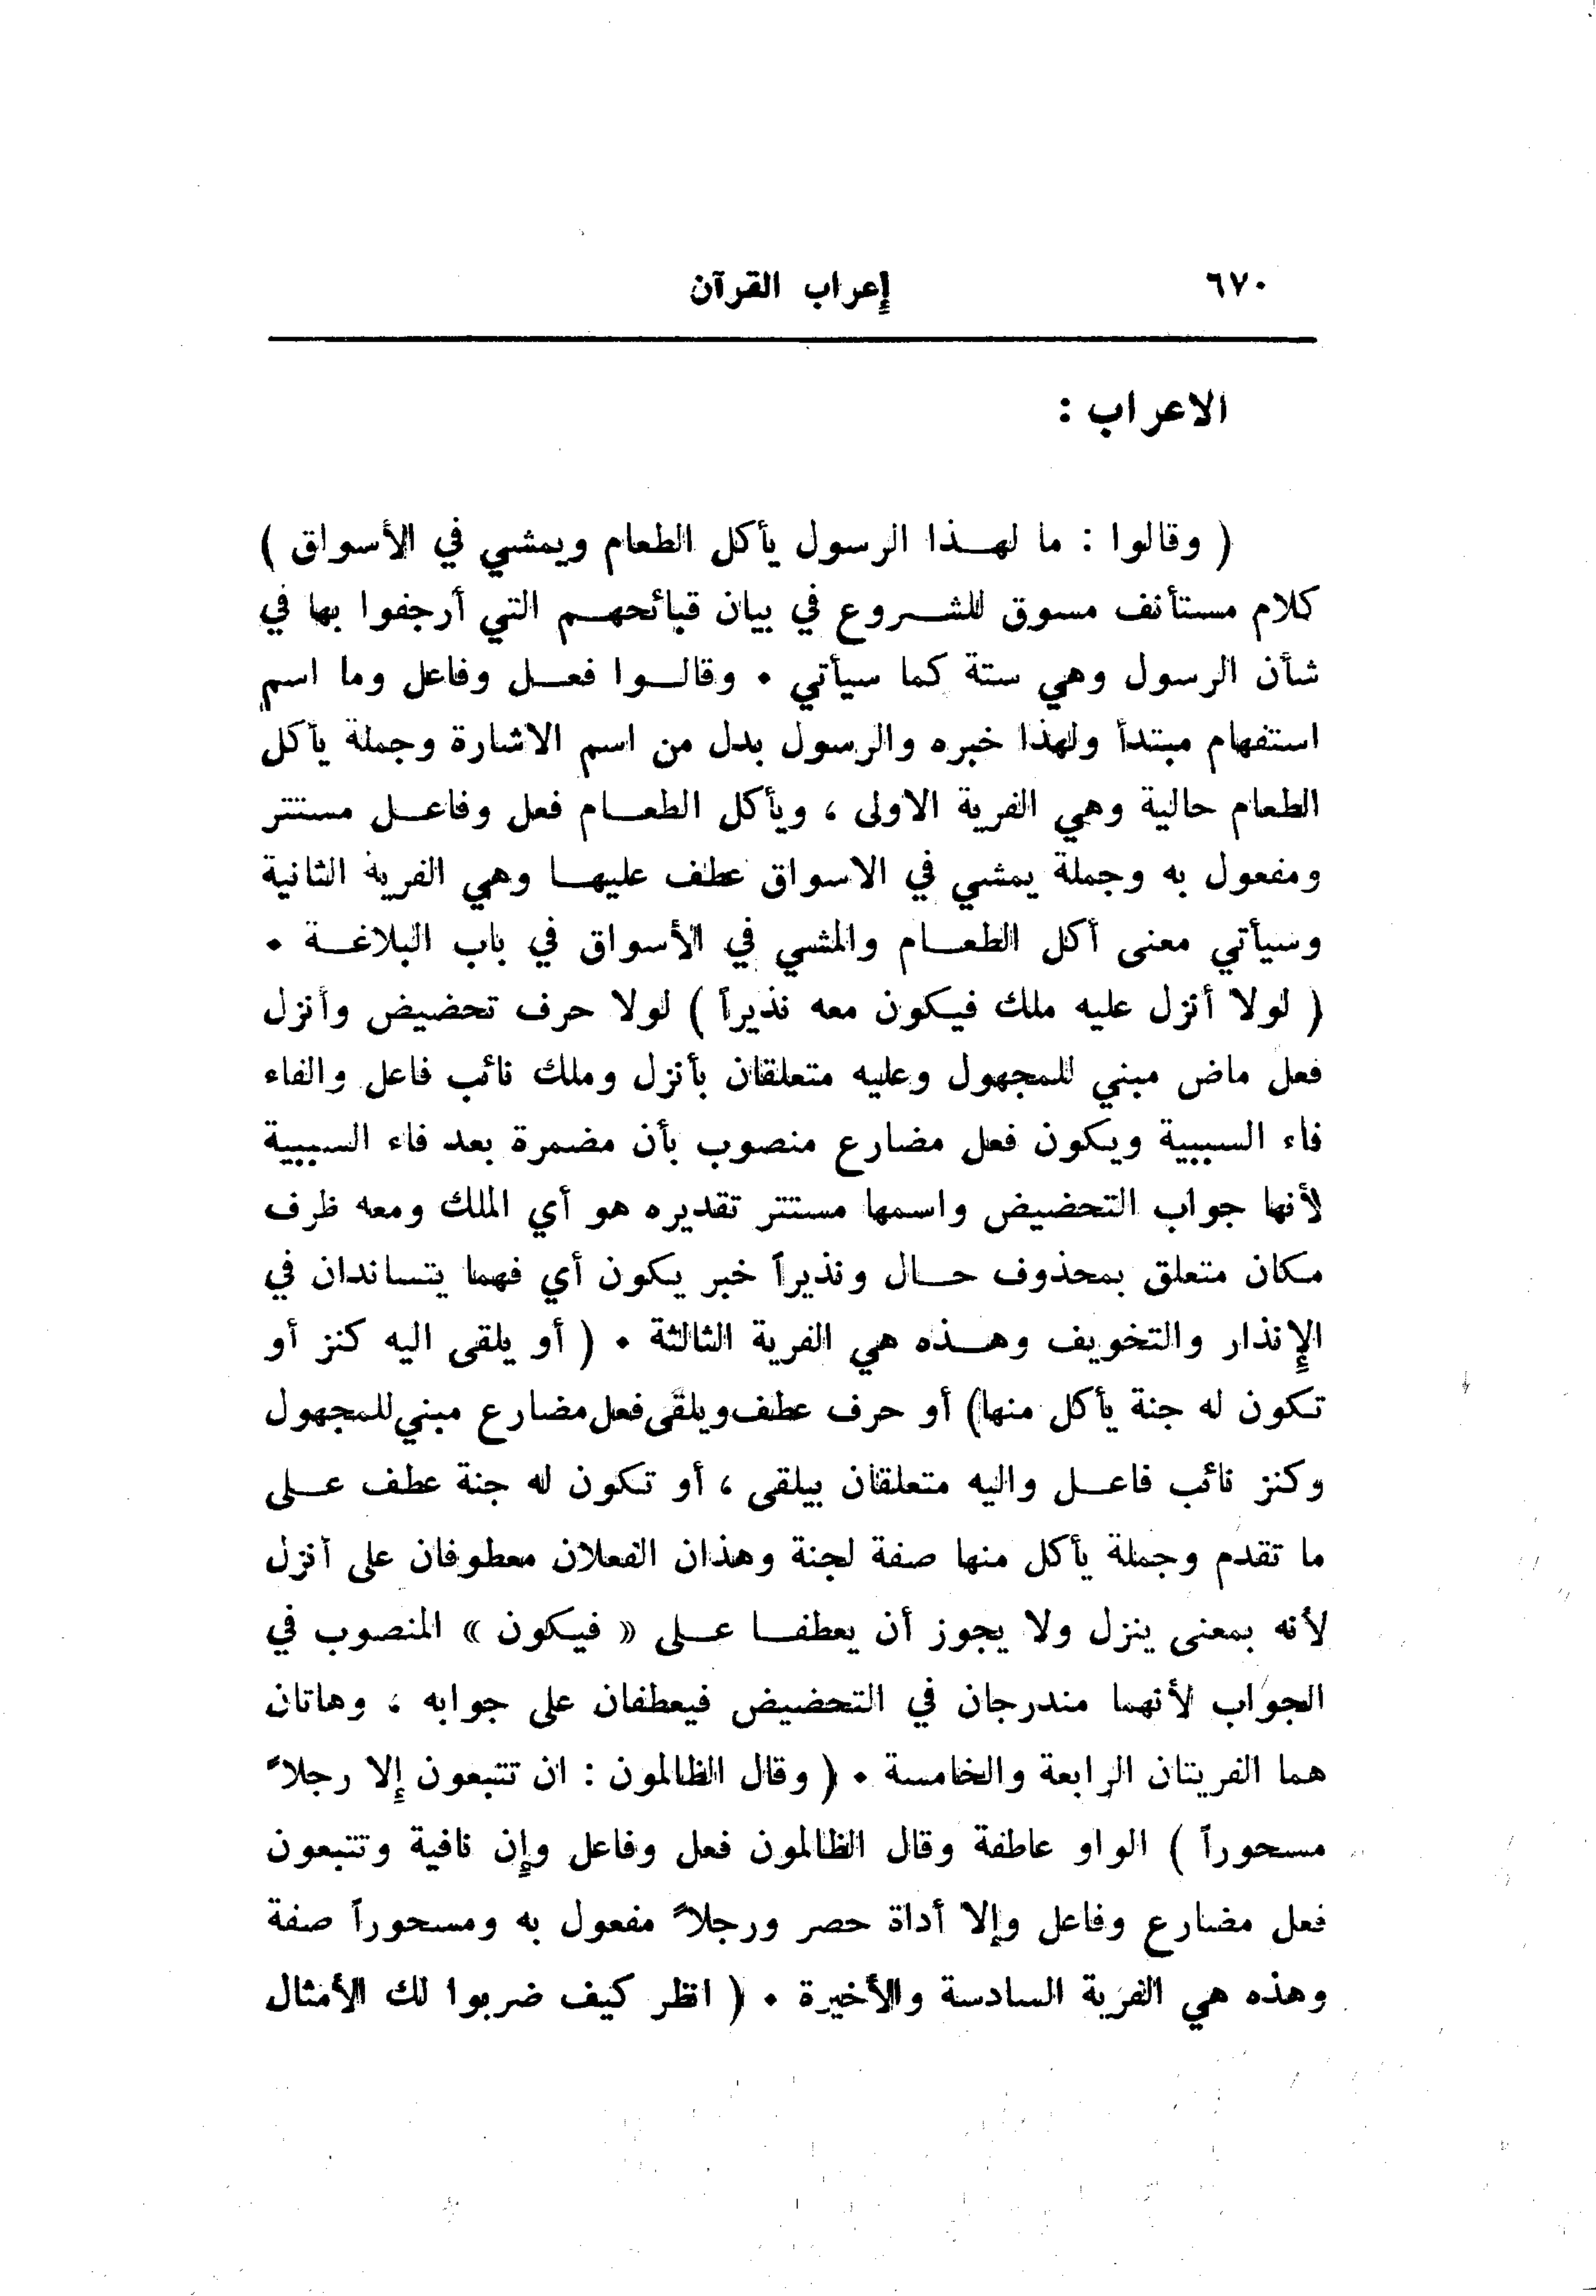 ٦٧٠ إعراب القرآن
الاعراب :
( وقالوا : ما لهذا الرسول يأكل الطعام ويمشي في الأسواق )
كلام مستأنف مسوق للشروع في بيان قبائحهم التي أرجفوا بها في
شأن الرسول وهي ستة كما سيأتي ٠ وقالوا فعل وفاعل وما اسم
استفهام مبتدأ ولهذا خبره والرسول بدل من اسم الاشارة وجملة يأكل
الطعام حالية وهي الفرية الاولى ، ويأكل الطعام فعل وفاعل مستتر
ومفعول به وجملة يمشي في الاسواق عطف عليها وهي الفرية الثانية
وسيأتي معنى أكل الطعام والمشي في الأسواق في باب البلاغة ٠
( لولا أنزل عليه ملك فيكون معه نذيراً ) لولا حرف تحضيض وأنزل
فعل ماض مبني للمجهول وعليه متعلقان بأنزل وملك نائب فاعل والفاء
فاء السببية ويكون فعل مضارع منصوب بأن مضمرة بعد فاء السببية
لأنها جواب التحضيض واسمها مستتر تقديره هو أي الملك ومعه ظرف
مكان متعلق بمحذوف حال ونذيراً خبر يكون أي فهما يتساندان في
الإنذار والتخويف وهذه هي الفرية الثالثة ٠ ( أو يلقى اليه كنز أو
تكون له جنة يأكل منها) أو حرف عطف ويلقى فعل مضارع مبني للمجهول
وكنز نائب فاعل واليه متعلقان بيلقى ، أو تكون له جنة عطف على
ما تقدم وجملة يأكل منها صفة لجنة وهذان الفعلان معطوفان على أنزل
لأنه بمعنى ينزل ولا يجوز أن يعطفا على « فيكون » المنصوب في
الجواب لأنهما مندرجان في التحضيض فيعطفان على جوابه ، وهاتان
هما الفريتان الرابعة والخامسة ٠ ( وقال الظالمون : ان تتبعون إلا رجلاً
مسحوراً ) الواو عاطفة وقال الظالمون فعل وفاعل وإن نافية وتتبعون
فعل مضارع وفاعل وإلا أداة حصر ورجلاً مفعول به ومسحوراً صفة
وهذه هي الفرية السادسة والأخيرة ٠ ( انظر كيف ضربوا لك الأمثال